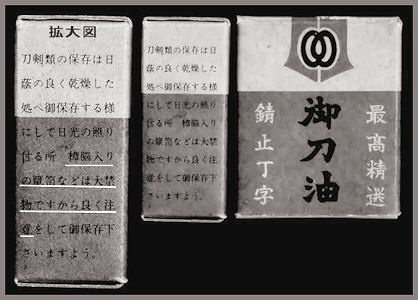 拡大図
刀剣類の保存は日
蔭の良く乾燥した
処へ御保存する様
にして日光の照り
付る所 樟脳入り
の簞笥などは大禁
物ですから良く注
意をして御保存下
さいますよう。
刀剣類の保存は日
蔭の良く乾燥した
処へ御保存する様
にして日光の照り
付る所 樟脳入り
の簞笥などは大禁
物ですから良く注
意をして御保存下
さいますよう。
最高精选
御刀油
錆止丁字